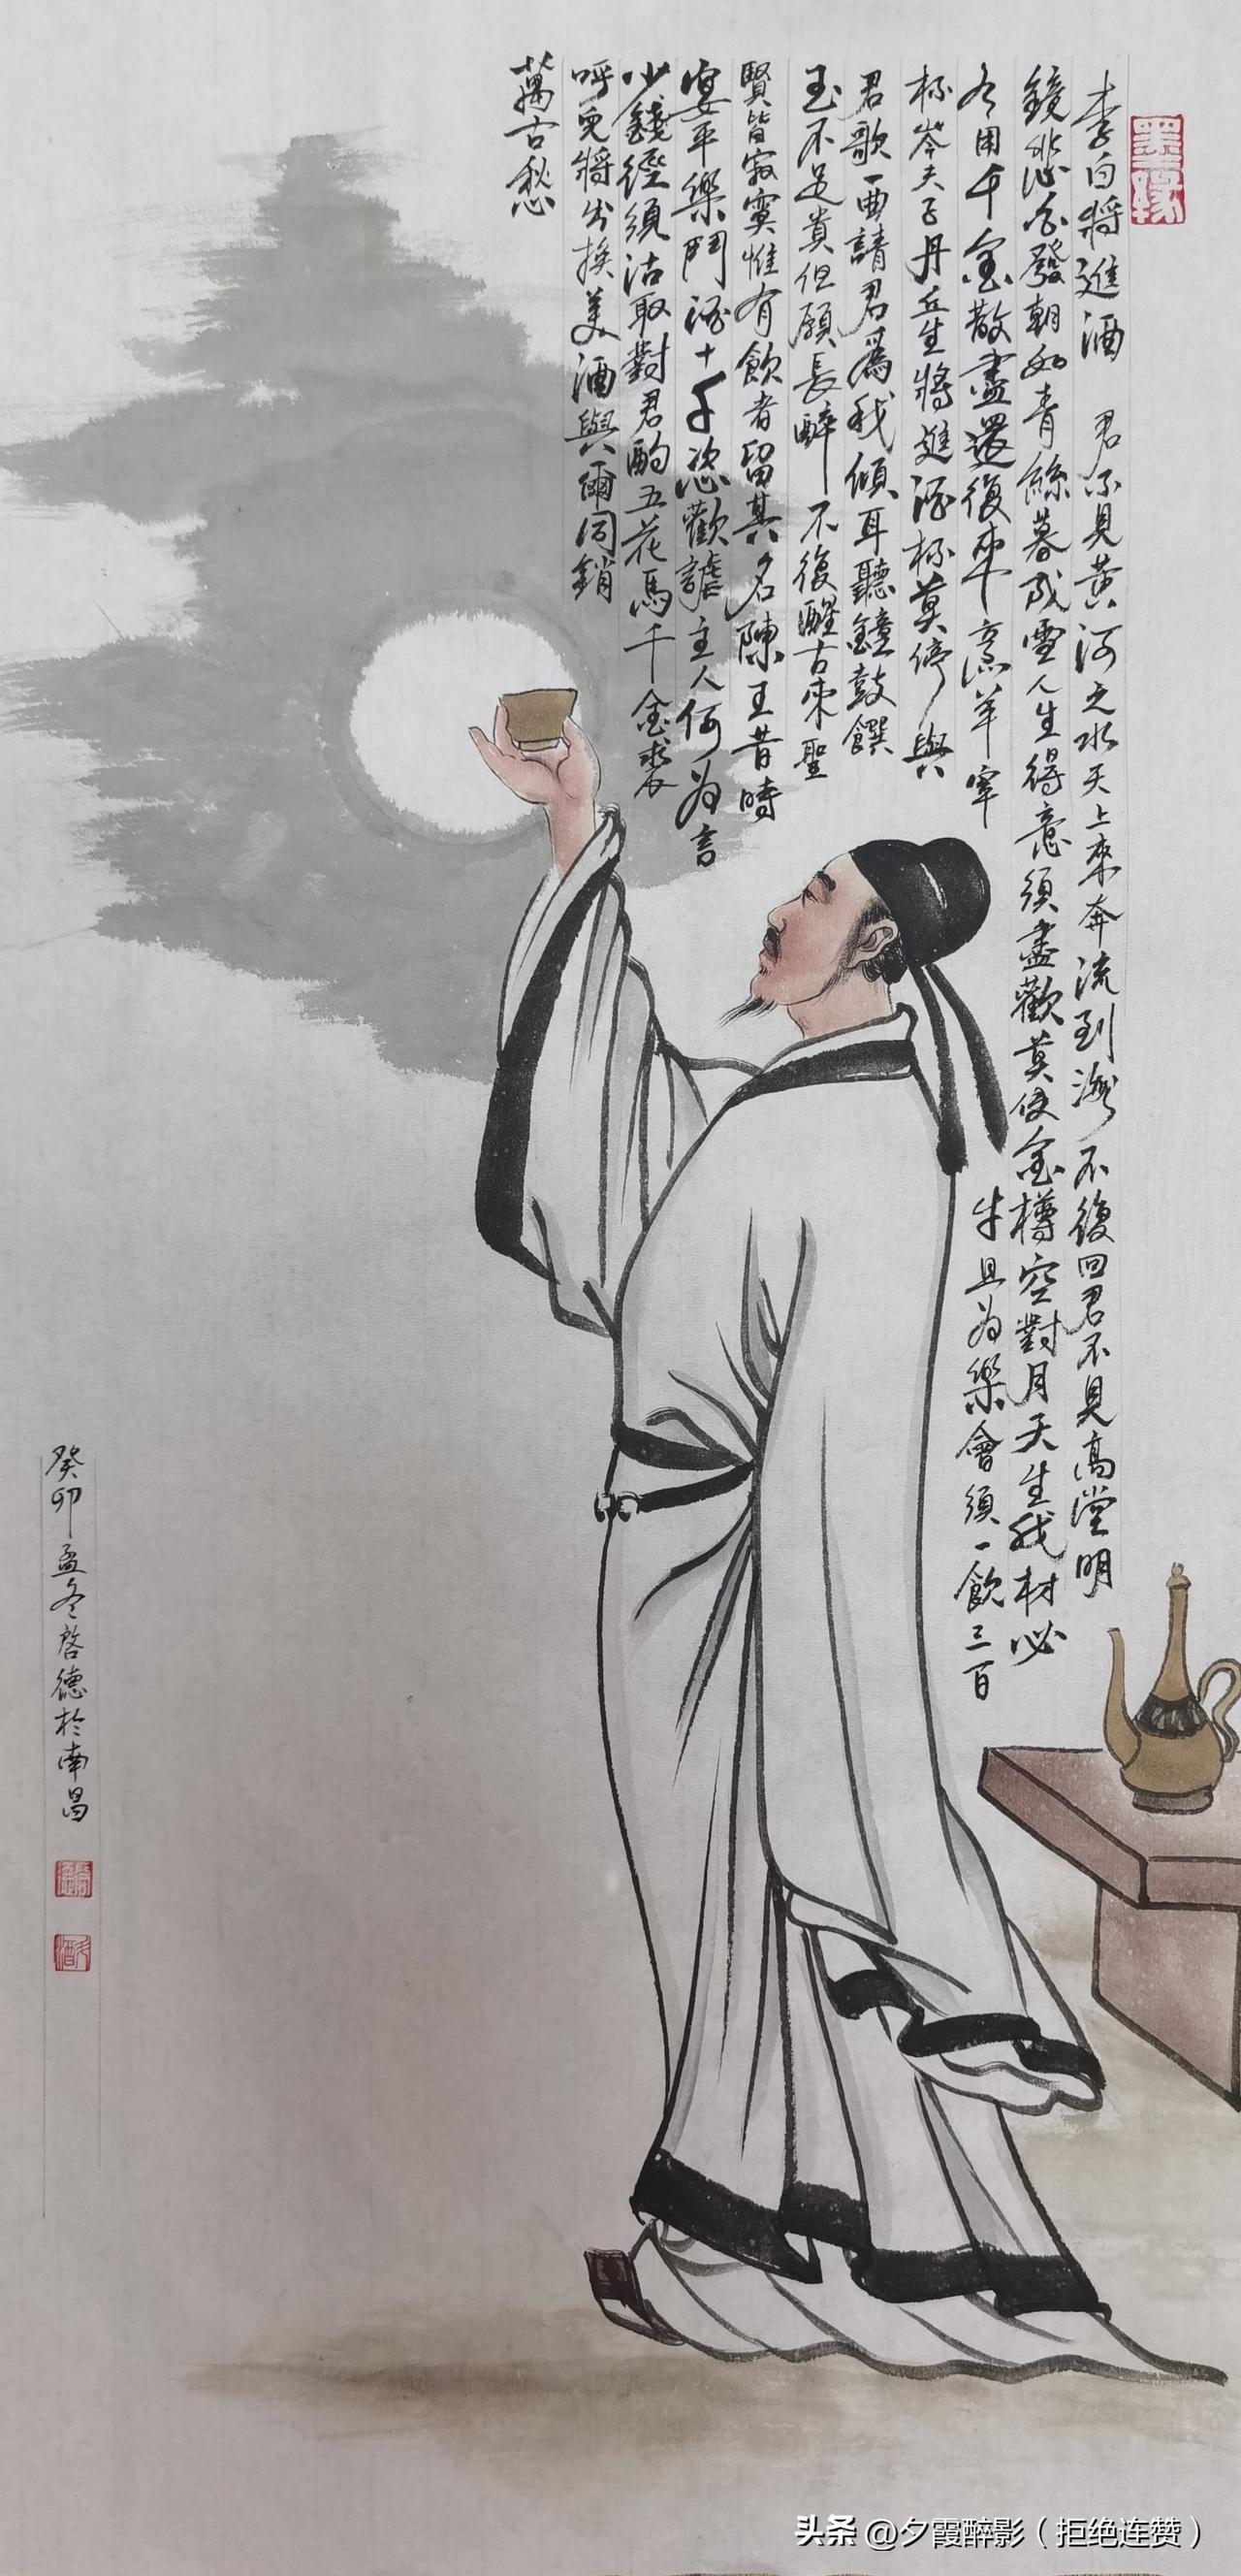 墨緣
李白將進酒 君不見黃河之水天上來奔流到海不復回君不見高堂明
鏡悲白發朝如青絲暮成雪人生得意須盡歡莫使金樽空對月天生我材必
有用千金散盡還復來烹羊宰牛且为樂會須一飲三百
杯岑夫子丹丘生將進酒杯莫停與
君歌一曲請君爲我傾耳聽鐘鼓饌
玉不足貴但願長醉不復醒古來聖
賢皆寂寞惟有飲者留其名陳王昔時
宴平樂鬥酒十千恣歡謔主人何为言
少錢徑須沽取對君酌五花馬千金裘
呼兒將出換美酒與爾同銷
萬古愁
癸卯孟冬啓德於南昌
头条 @夕霞醉影（拒绝连赞）